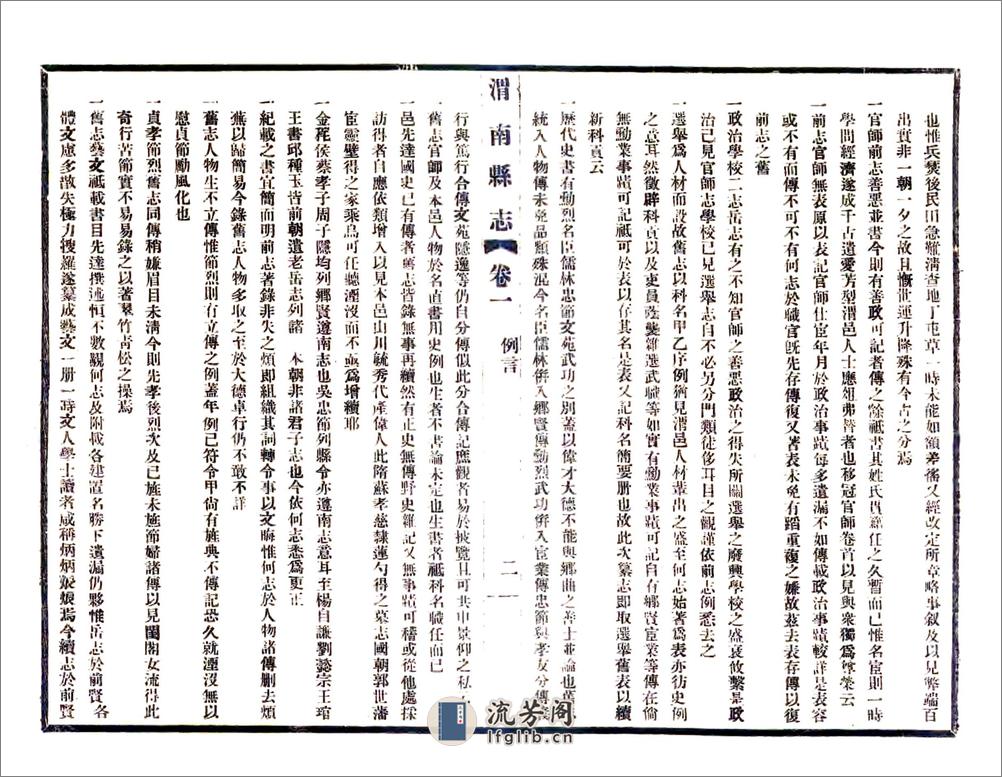 也惟兵燹後民田急難清查地丁屯草一時未能如額弟備又經改定所章略事叙及以見弊端百
出實非一朝一夕之故且慨世運升降殊有今古之分焉
一官師前志善惡並書今則有善政可記者傳之餘祇書其姓氏貫籍任之久暫而已惟名宦則一時
學問經濟遂成千古遺愛芳型渭邑人士應俎弗替者也移冠官師卷首以見與衆獨爲尊榮云
一前志官師無表原以表記官師仕宦年月於政治事蹟每多遺漏不如傳載政治事蹟較詳是表容
或不有而傳不可不有何志於職官既先存傳復又著表未免有蹈重複之嫌故茲去表存傳以復
前志之舊
一政治學校二志岳志有之不知官師之善惡政治之得失所關選舉之廢興學校之盛衰攸繫是政
治已見官師志學校已見選舉志自不必另分門類徒侈耳目之觀謹依前志例悉去之
一選舉爲人材而設故舊志以科名甲乙序例猶見渭邑人材輩出之盛至何志始著爲表亦彷史例
之意耳然徵辟科貢以及吏員甄襲雜選武職等如實有勳業事蹟可記自有鄉賢宦業等傳在倘
無勳業事蹟可記祇可於表以存其名是表又記科名簡要册也故此次纂志即取選舉舊表以續
新科貢云
一歷代史書有勳烈名臣儒林忠節文苑武功之別蓋以偉才大德不能與鄉曲之善士並論也舊
統入人物傳未免品類殊混今名臣儒林併入鄉賢傳勳烈武功併入宦業傳忠節與孝友分傳
渭南縣志 卷一 例言 二
行與篤行合傳文苑隱逸等仍自分傳似此分合傳記應觀者易於披覽且可共申景仰之私
一舊志官師及本邑人物於名直書用史例也生者不書論未定也生書者祇科名職任而已
一邑先達國史已有傳者舊志皆錄無事再續然有正史無傳野史雜記又無事蹟可稽或從他處採
訪得者自應依類增入以見本邑山川毓秀代產偉人此隋蘇孝慈隸蓮勺得之墓志國朝郭世藩
宦靈壁得之家乘烏可任聽湮沒而不亟爲增續耶
一金秺侯蔡孝子周子隱均列鄉賢遵南志也吳忠節列縣令亦遵南志意耳至楊自謙劉懿宗王瑢
王書邱種玉皆前朝遺老岳志列諸 本朝非諸君子志也今依何志悉爲更正
一紀載之書宜簡而明前志著錄非失之煩即組織其詞轉令事以文晦惟何志於人物諸傳刪去煩
蕪以歸簡易今錄舊志人物多取之至於大德卓行仍不敢不詳
一舊志人物生不立傳惟節烈則有立傳之例蓋年例已符令甲尙有旌典不傳記恐久就湮沒無以
慰貞節勵風化也
一貞孝節烈舊志同傳稍嫌眉目未清今則先孝後烈次及已旌未旌節婦諸傳以見閨閣女流得此
奇行苦節實不易易錄之以著翠竹青松之操焉
一舊志藝文祇載書目先達撰述恒不數覯何志及附載各建置名勝下遺漏仍夥惟岳志於前賢各
體文處多散失極力搜羅遂纂成藝文一册一時文人學士讀者咸稱炳炳烺烺焉今續志於前賢
流芳阁
lfglib.cn